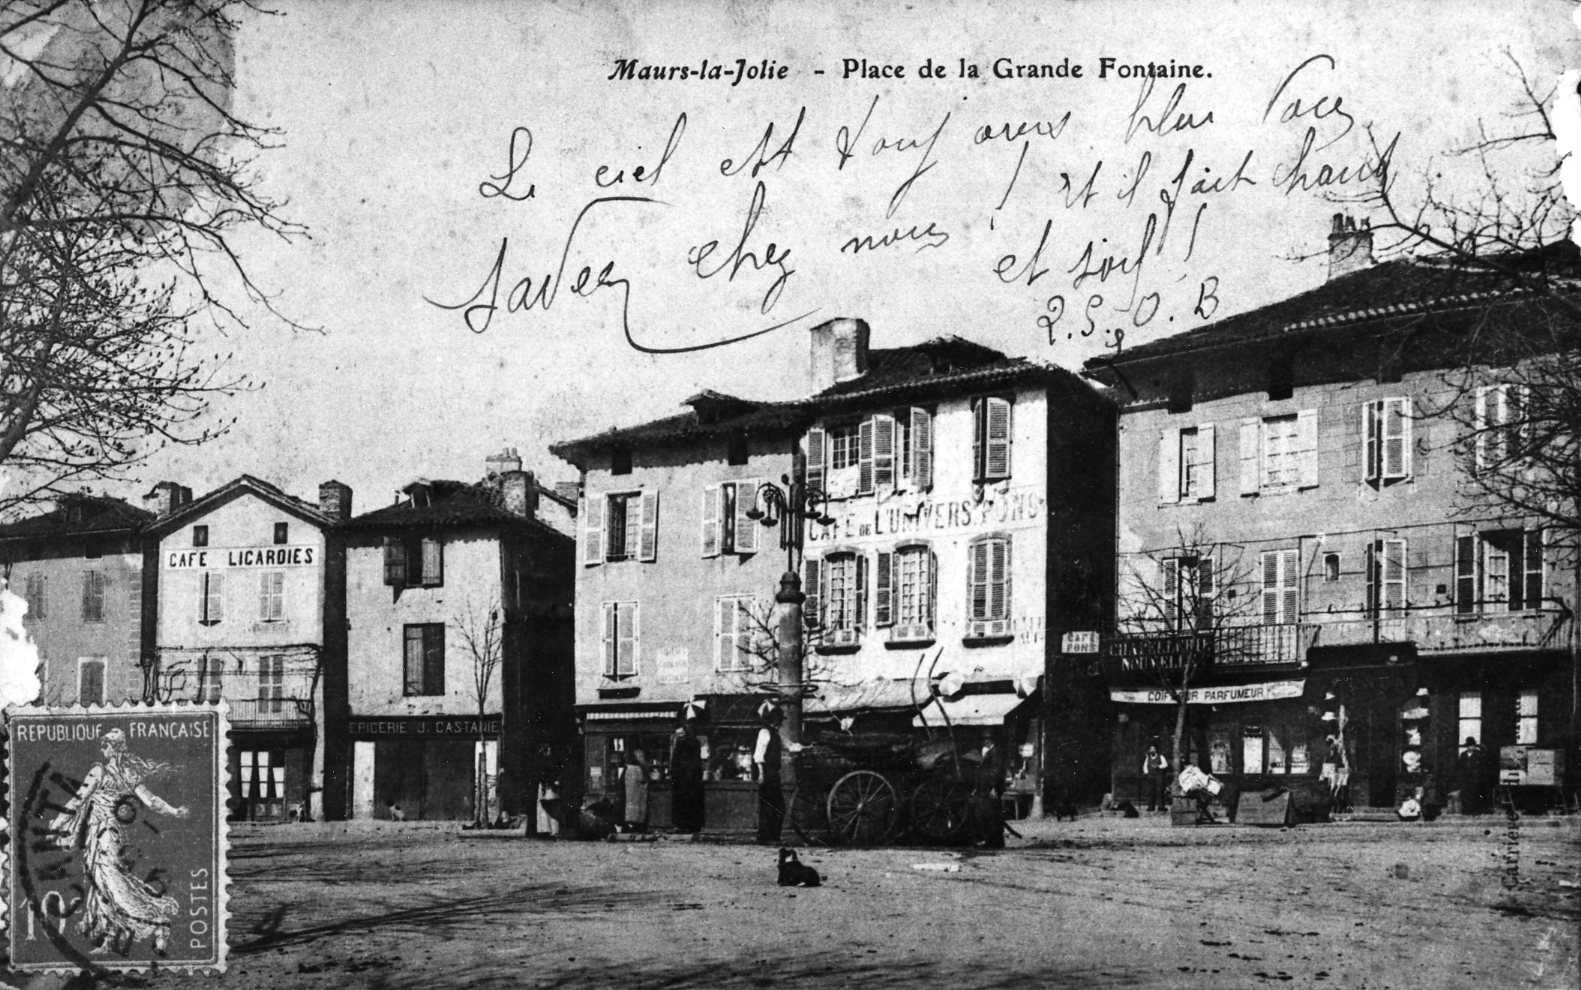 Maurs-la-Jolie - Place de la Grande Fontaine.
Le ciel est toujours bleu vous
savez chez nous ! et il fait chaud
et soif !
CAFÉ LICARDIES
EPICERIE J. CASTANIE
CAFÉ DE L'UNIVERS PONS
CAFÉ
PONS
NOUVELLE
COIFFEUR PARFUMEUR
REPUBLIQUE FRANÇAISE
10
POSTES